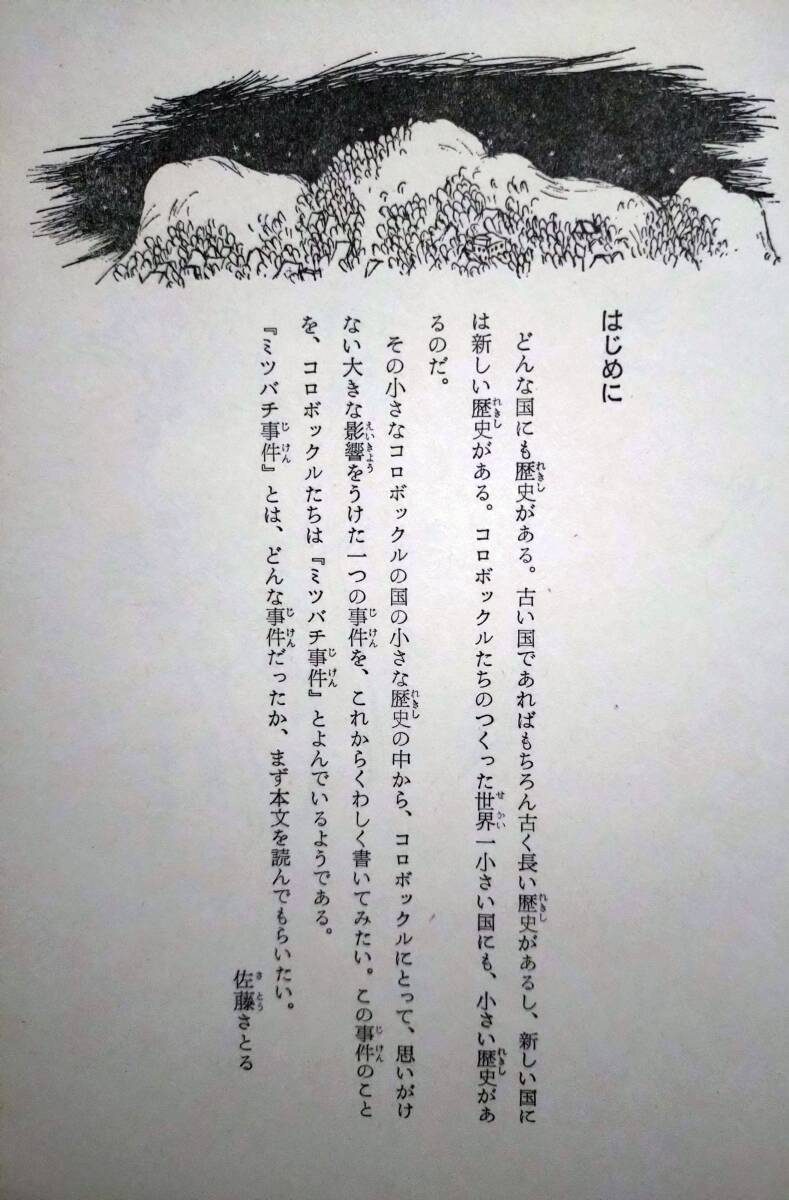 はじめに
どんな国にも歴史がある。古い国であればもちろん古く長い歴史があるし、新しい国に
は新しい歴史がある。コロボックルたちのつくった世界一小さい国にも、小さい歴史があ
るのだ。
その小さなコロボックルの国の小さな歴史の中から、コロボックルにとって、思いがけ
ない大きな影響をうけた一つの事件を、これからくわしく書いてみたい。この事件のこと
を、コロボックルたちは『ミツバチ事件』とよんでいるようである。
『ミツバチ事件』とは、どんな事件だったか、まず本文を読んでもらいたい。
佐藤さとる